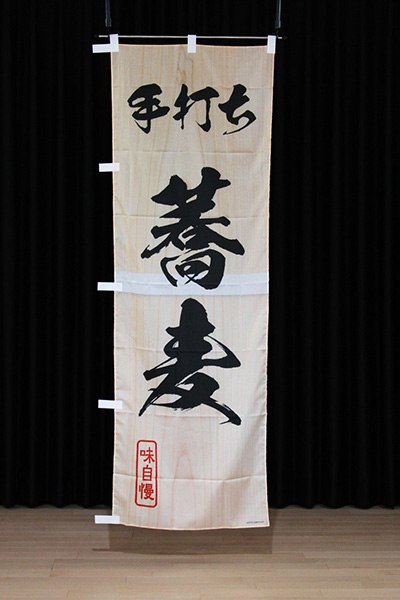 手打ち
蕎麦
味自慢